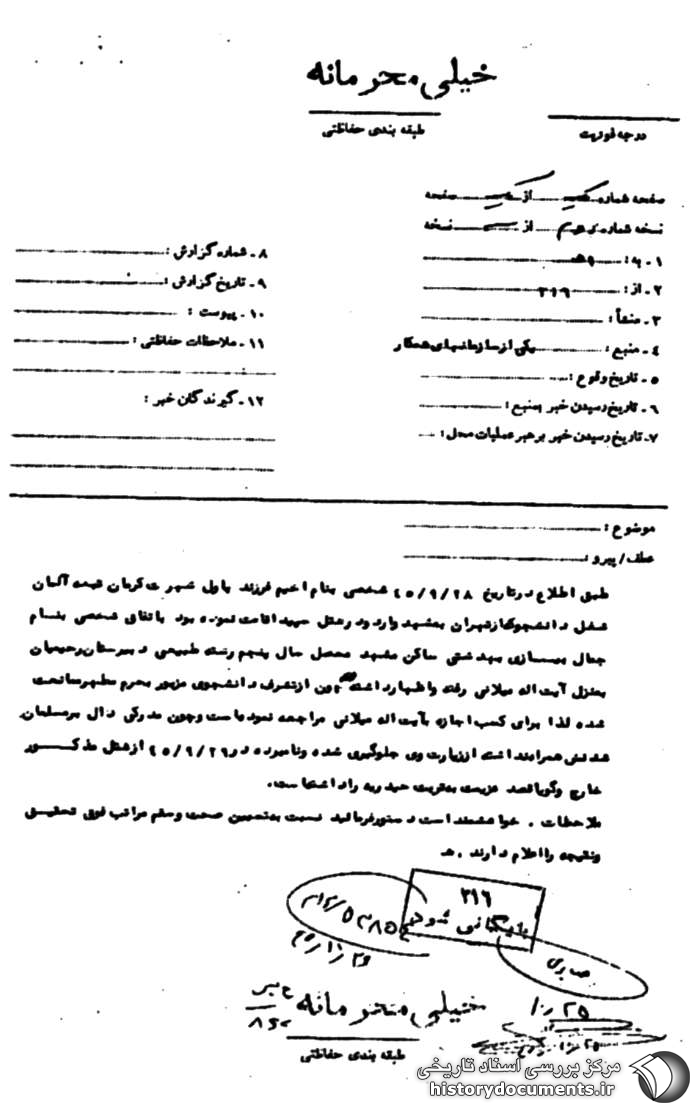 خیلی محرمانه
درجه فوریت
طبقه بندی حفاظتی
صفحه شماره یک از یک صفحه
نسخه شماره از نسخه
۱ - به :
۲ - از : ۳۱۶
۳ - منشأ :
۴ - منبع : یکی از سازمانهای همکار
۵ - تاریخ وقوع :
۶ - تاریخ رسیدن خبر بمنبع :
۷ - تاریخ رسیدن خبر برهبر عملیات محل :
۸ - شماره گزارش :
۹ - تاریخ گزارش :
۱۰ - پیوست :
۱۱ - ملاحظات حفاظتی :
۱۲ - گیرندگان خبر :
موضوع :
عطف / پیرو :
طبق اطلاع در تاریخ ۴۵/۹/۲۸ شخصی بنام اخیم فرزند شهرت کرمان تبعه آلمان
شغل دانشجو که از تهران بمشهد وارد و در هتل حمید اقامت نموده بود باتفاق شخصی بنام
جمال بهشتی ساکن مشهد محصل سال پنجم رشته طبیعی دبیرستان رحیمیان
بمنزل آیت اله میلانی رفته و اظهار داشته چون از تشرف دانشجوی مزبور بحرم مطهر ممانعت
شده لذا برای کسب اجازه بآیت اله میلانی مراجعه نموده است و چون مدرکی دال بر مسلمان
شدنش همراه نداشته از زیارت وی جلوگیری شده و نامبرده در ۴۵/۹/۲۹ از هتل مذکور
خارج و گویا قصد عزیمت بتربت حیدریه را داشته است.
ملاحظات . خواهشمند است دستور فرمائید نسبت بتعیین صحت و سقم مراتب فوق تحقیق
و نتیجه را اعلام دارند . هـ
۳۱۶
بایگانی شود
صبری
۴۵/۱۱/۲۶
۱۰/۲۵
خیلی محرمانه
طبقه بندی حفاظتی
مرکز بررسی اسناد تاریخی
historydocuments.ir